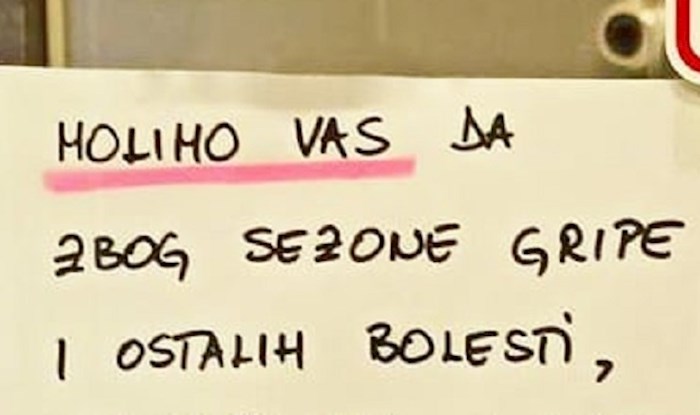 MOLIMO VAS DA
ZBOG SEZONE GRIPE
I OSTALIH BOLESTI,